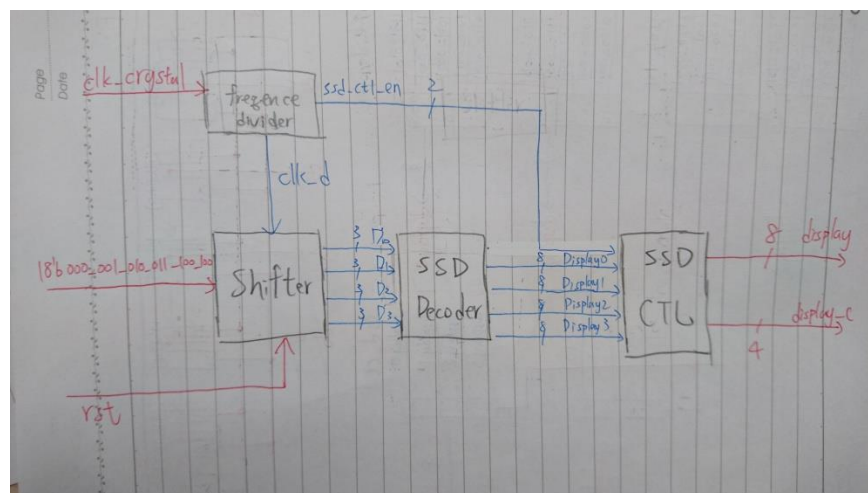 Page
Date
clk_crystal
freqence
divider
ssd_ctl_en
2
clk_d
18'b000_001_010_011_100_100
Shifter
rst
3 D0
3 D1
3 D2
3 D3
SSD
Decoder
8 Display0
8 Display1
8 Display2
8 Display3
SSD
CTL
8 display
display_c
4